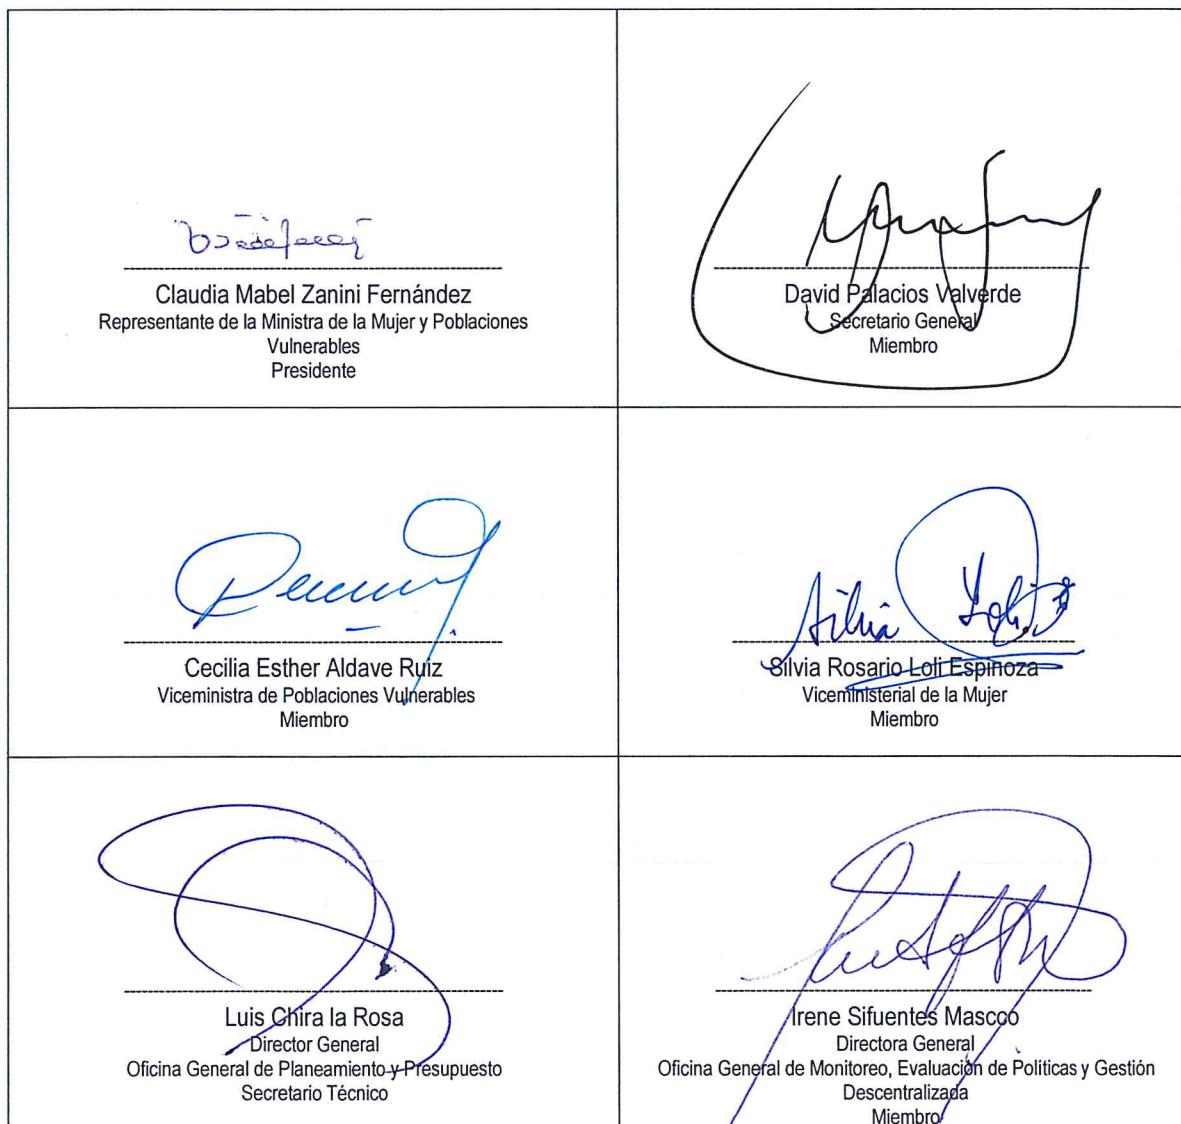 Claudia Mabel Zanini Fernández
Representante de la Ministra de la Mujer y Poblaciones
Vulnerables
Presidente
David Palacios Valverde
Secretario General
Miembro
Cecilia Esther Aldave Ruiz
Viceministra de Poblaciones Vulnerables
Miembro
Silvia Loli
Silvia Rosario Loli Espinoza
Viceministerial de la Mujer
Miembro
Luis Chira la Rosa
Director General
Oficina General de Planeamiento y Presupuesto
Secretario Técnico
Irene Sifuentes Mascco
Directora General
Oficina General de Monitoreo, Evaluación de Políticas y Gestión
Descentralizada
Miembro